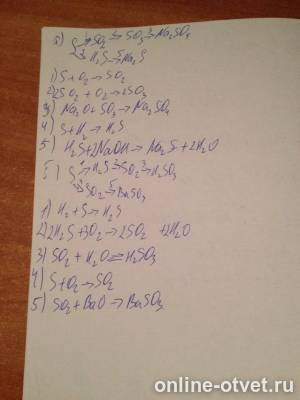 а) S 1→ SO₂ 2→ SO₃ 3→ Na₂SO₄
4→ H₂S 5→ Na₂S
1) S + O₂ → SO₂
2) 2SO₂ + O₂ → 2SO₃
3) Na₂O + SO₃ → Na₂SO₄
4) S + H₂ → H₂S
5) H₂S + 2NaOH → Na₂S + 2H₂O
б) S 1→ H₂S 2→ SO₂ 3→ H₂SO₃
4→ SO₂ 5→ BaSO₃
1) H₂ + S → H₂S
2) 2H₂S + 3O₂ → 2SO₂ + 2H₂O
3) SO₂ + H₂O ⇌ H₂SO₃
4) S + O₂ → SO₂
5) SO₂ + BaO → BaSO₃
online-otvet.ru